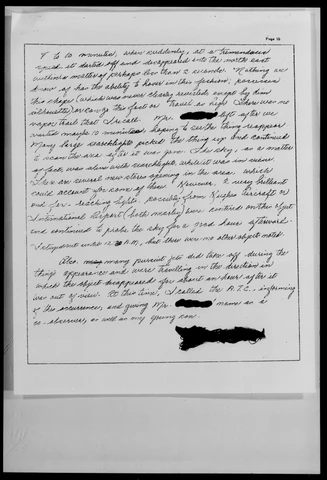 Page 10
8 to 10 minutes, when suddenly, at a tremendous
speed it darted off and disappeared into the north east
within a matter of perhaps less than 2 seconds. Nothing we
know of has the ability to hover in this fashion, possesses
this shape (which was never clearly revealed except by dim
silhouette) or can go this fast or travel as high. There was no
vapor trail that I recall. Mr. left after we
waited maybe 10 minutes hoping to see the thing reappear
Many large searchlights picked the thing up and continued
to scan the area after it was gone. The sky, as a matter
of fact, was alive with searchlights, while it was in view.
There are several new stores opening in the area, which
could account for some of them. However, 2 very brilliant
and far-reaching lights, possibly from Hughes Aircraft or
International Airport (both nearby) were centered on the object
and continued to probe the sky for a good hour afterward.
I stayed out until 12:30 A.M., but there was no other object noted.
Also many pursuit jets did take off during the
thing's appearance and were travelling in the direction in
which the object disappeared for about an hour after it
was out of view. At this time, I called the A.T.C. informing
of the occurrence, and giving Mr. name as a
co-observer, as well as my young son.